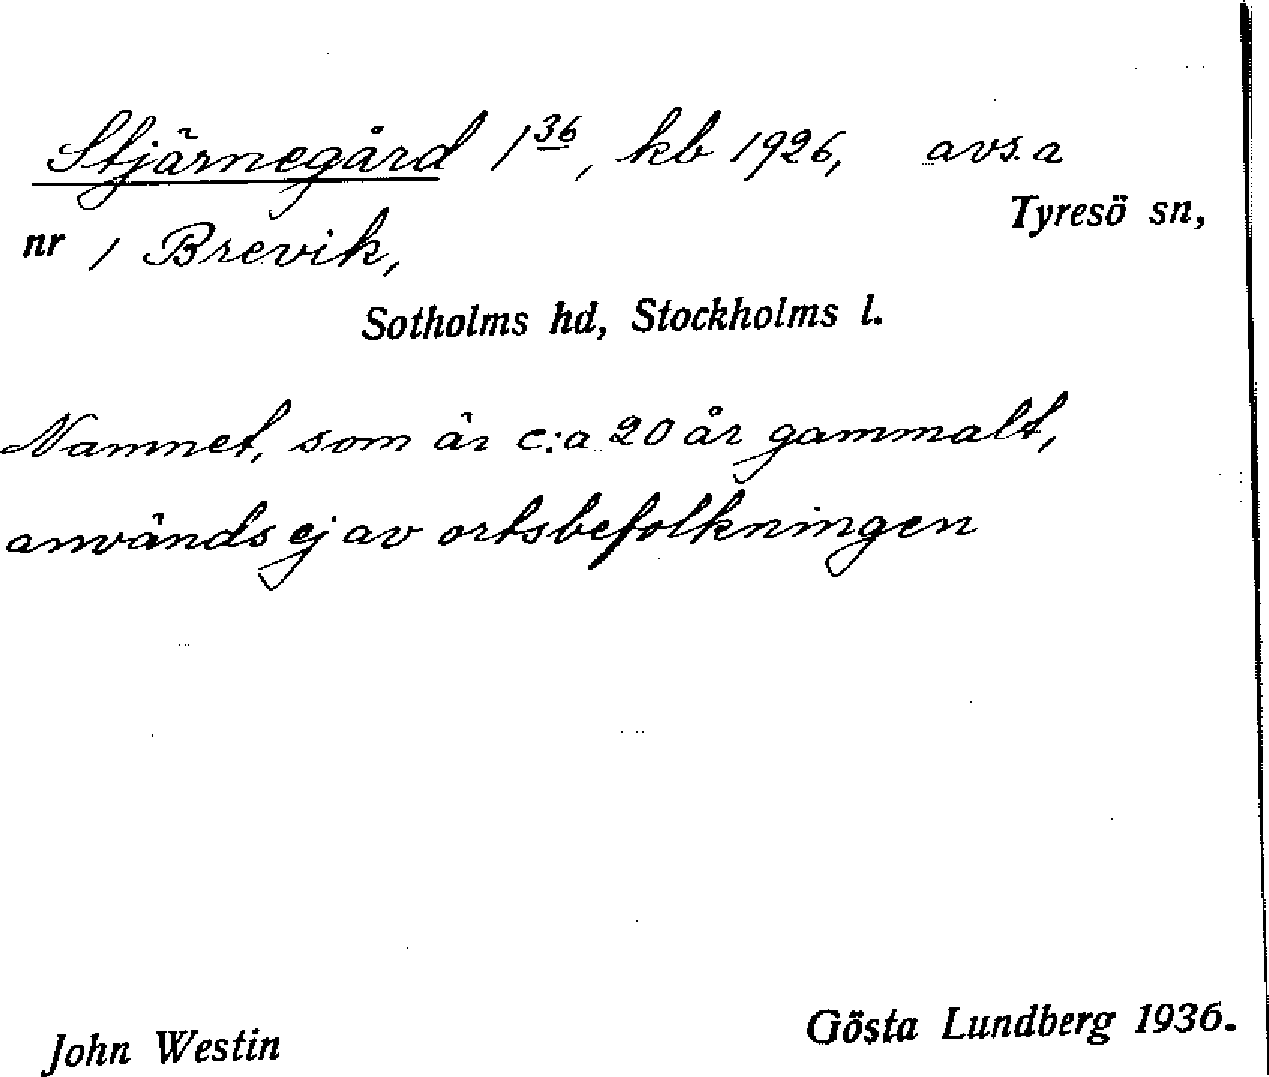 Stjärnegård 1 36, kb 1926, avs. a
Tyresö sn,
nr 1 Brevik,
Sotholms hd, Stockholms l.
Namnet, som är c:a 20 år gammalt,
används ej av ortsbefolkningen
John Westin
Gösta Lundberg 1936.